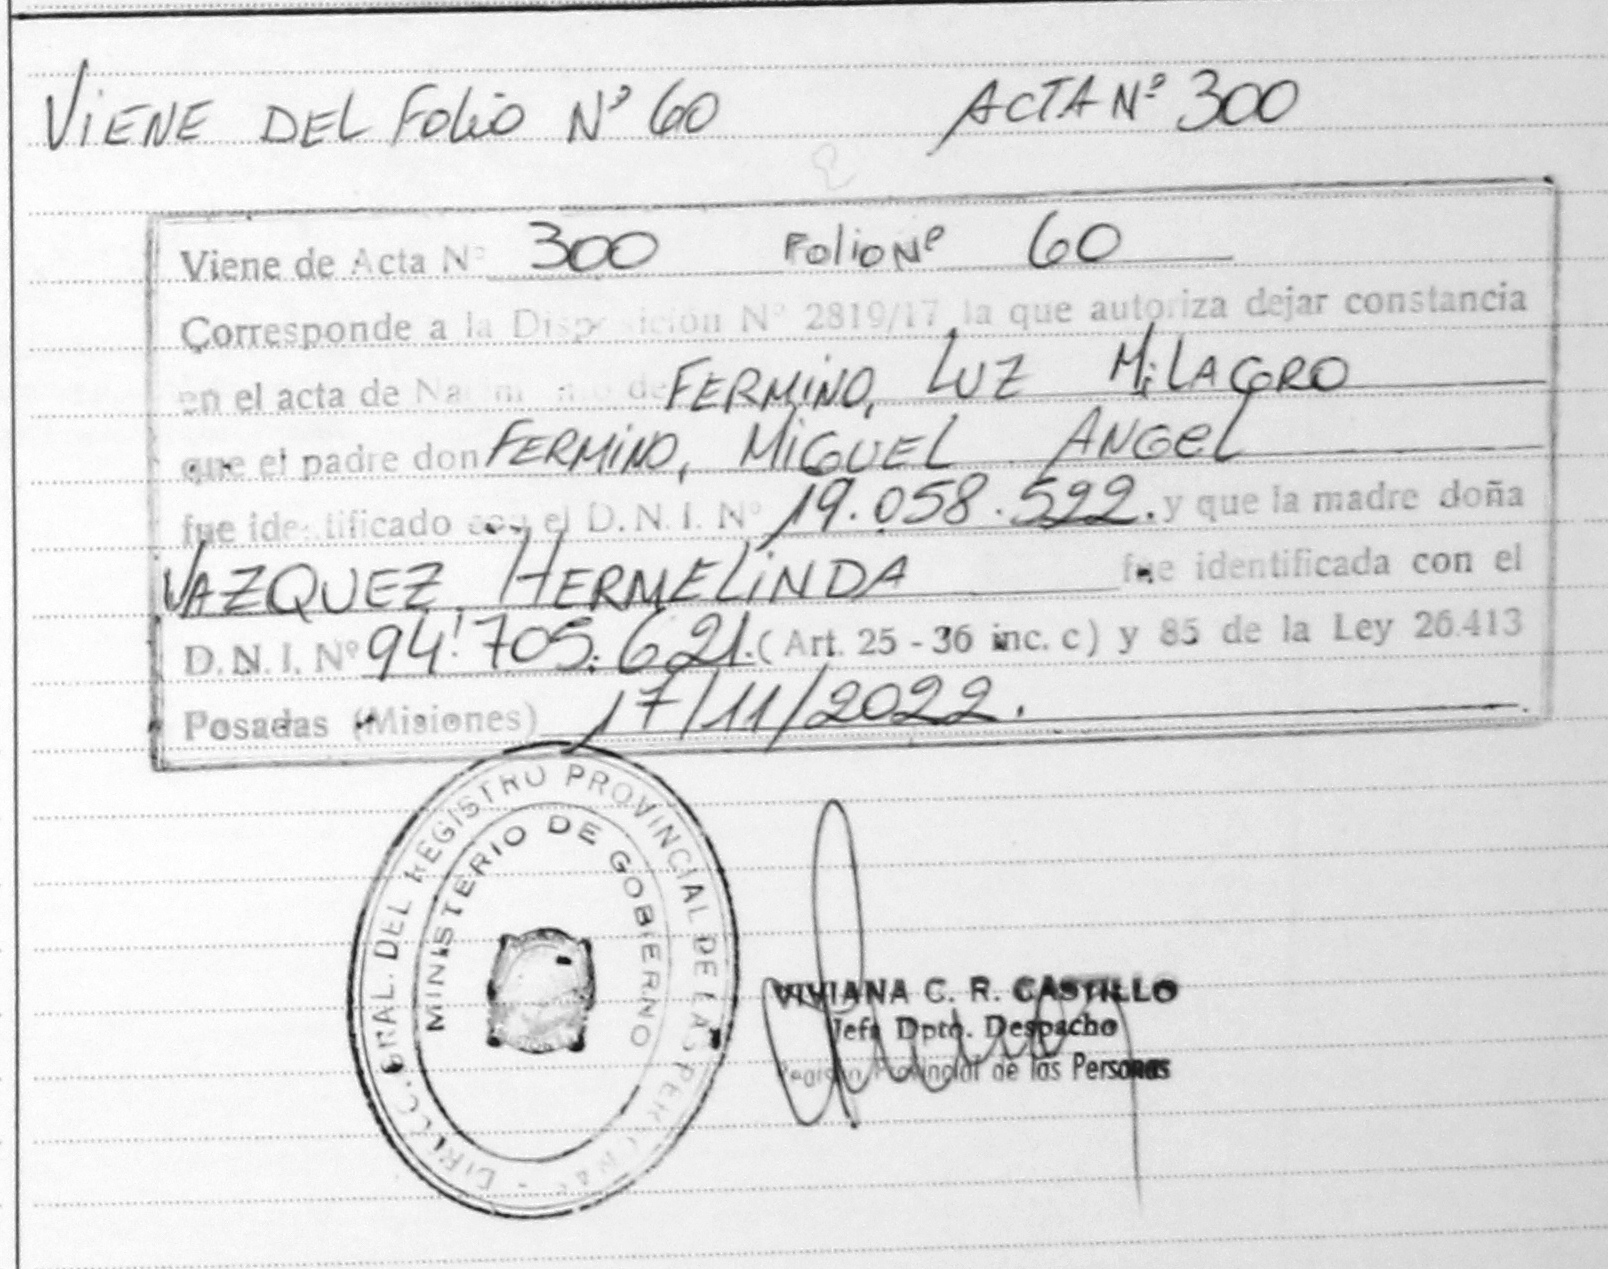 VIENE DEL FOLIO Nº 60 ACTA Nº 300
Viene de Acta Nº 300 Folio Nº 60
Corresponde a la Disposición Nº 2819/17 la que autoriza dejar constancia
en el acta de Nacimiento de FERMINO, LUZ MILAGRO
que el padre don FERMINO, MIGUEL ANGEL
fue identificado con el D.N.I. Nº 19.058.522. y que la madre doña
VAZQUEZ, HERMELINDA fue identificada con el
D.N.I. Nº 94.705.621. (Art. 25 - 36 inc. c) y 85 de la Ley 26.413
Posadas (Misiones) 17/11/2022.
DIREC. GRAL. DEL REGISTRO PROVINCIAL DE LAS PERSONAS
MINISTERIO DE GOBIERNO
VIVIANA C. R. CASTILLO
Jefa Dpto. Despacho
Registro Provincial de las Personas